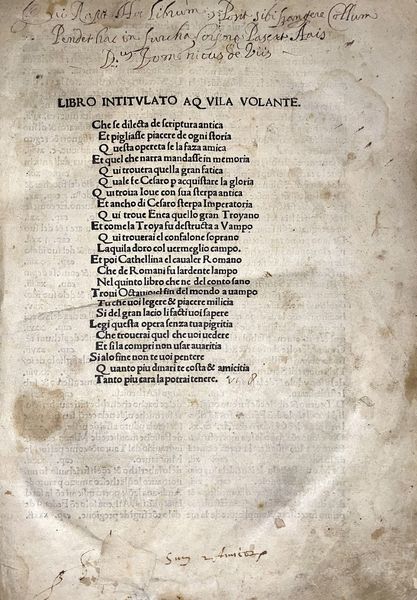 Qui Rapit Hor Librum Pont sibi frangere Collum
Pendet hac in furcha Corpus Pascat Auis
D. Domenicus de Viis
LIBRO INTITVLATO AQVILA VOLANTE.
Che se dilecta de scriptura antica
Et pigliasse piacere de ogni storia
Questa opereta se la faza amica
Et quel che narra mandasse in memoria
Qui trouera quella gran fatica
Quale fe Cesaro p acquistare la gloria
Qui troua Ioue con sua sterpa antica
Et ancho di Cesaro sterpa Imperatoria
Qui troue Enea quello gran Troyano
Et come la Troya fu destructa a Vampo
Qui trouerai el confalone soprano
Laquila doro col uermeglio campo.
Et poi Cathellina el caualer Romano
Che de Romani fu lardente lampo
Nel quinto libro che ne del conto sano
Troui Octauio el fin del mondo a uampo
Tu che uoi legere & piacere milicia
Si del gran lacio li facti uoi sapere
Legi questa opera senza tua pigritia
Che trouerai quel che uoi uedere
Et si la compri non usar auaritia
Si alo fine non te uoi pentere
Quanto piu dinari te costa & amicitia
Tanto piu cara la potrai tenere.